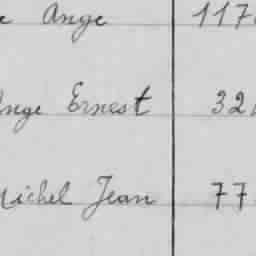 Ange 117
Ange Ernest 32
Michel Jean 77